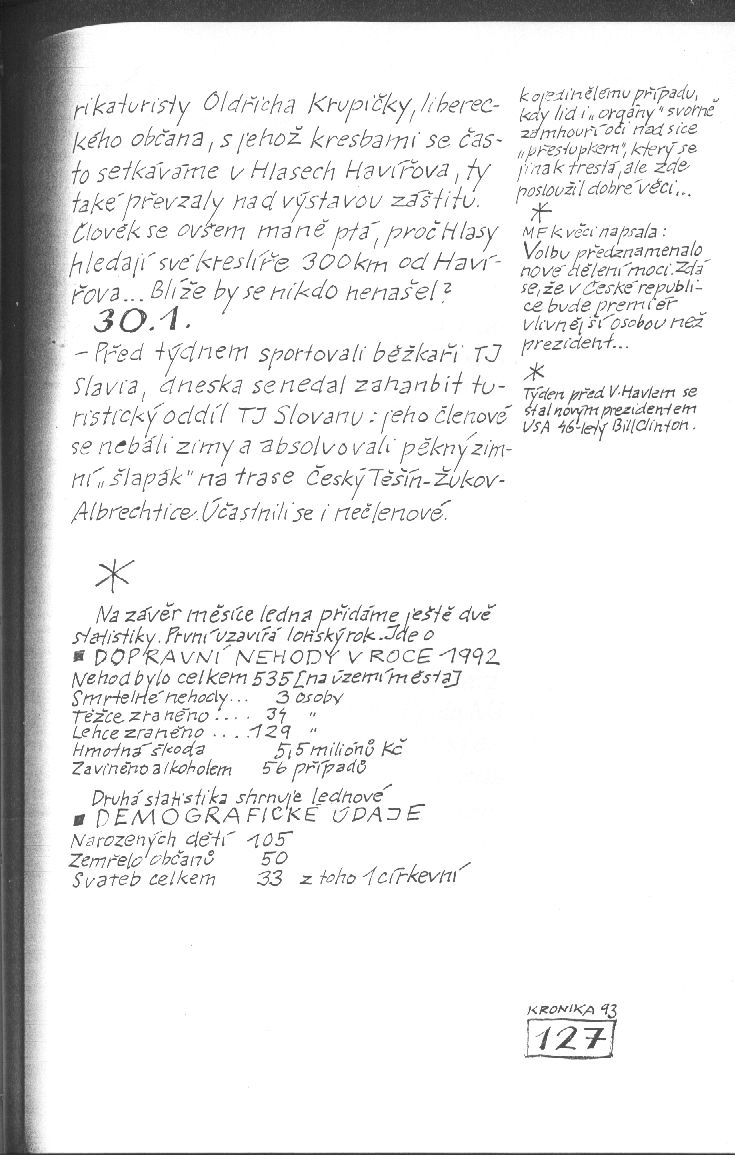 rikaturisty Oldřicha Krupičky, liberec-
kého občana, s jehož kresbami se čas-
to setkáváme v Hlasech Havířova, ty
také převzaly nad výstavou záštitu.
Člověk se ovšem maně ptá, proč Hlasy
hledají své kreslíře 300km od Haví-
řova... Blíže by se nikdo nenašel?
30.1.
- Před týdnem sportovali běžkaři TJ
Slavia, dneska se nedal zahanbit tu-
ristický oddíl TJ Slovanu: jeho členové
se nebáli zimy a absolvovali pěkný zim-
ní „šlapák" na trase Český Těšín-Žukov-
Albrechtice. Účastnili se i nečlenové.
*
Na závěr měsíce ledna přidáme ještě dvě
statistiky. První uzavírá loňský rok. Jde o
■ DOPRAVNÍ NEHODY V ROCE 1992
Nehod bylo celkem 535 [na území města]
Smrtelné nehody... 3 osoby
Těžce zraněno .... 34 "
Lehce zraněno .... 129 "
Hmotná škoda 5,5 miliónů Kč
Zaviněno alkoholem 56 případů
Druhá statistika shrnuje lednové
■ DEMOGRAFICKÉ ÚDAJE
Narozených dětí 105
Zemřelo občanů 50
Svateb celkem 33 z toho 1 církevní
k ojedinělému případu,
kdy lid i „orgány" svorně
zamhouří oči nad sice
„přestupkem", který se
jinak trestá, ale zde
posloužil dobré věci...
*
MF k věci napsala:
Volbu předznamenalo
nové dělení moci. Zdá
se, že v České republi-
ce bude premiér
vlivnější osobou než
prezident...
*
Týden před V. Havlem se
stal novým prezidentem
USA 46-letý Bill Clinton.
KRONIKA 93
127